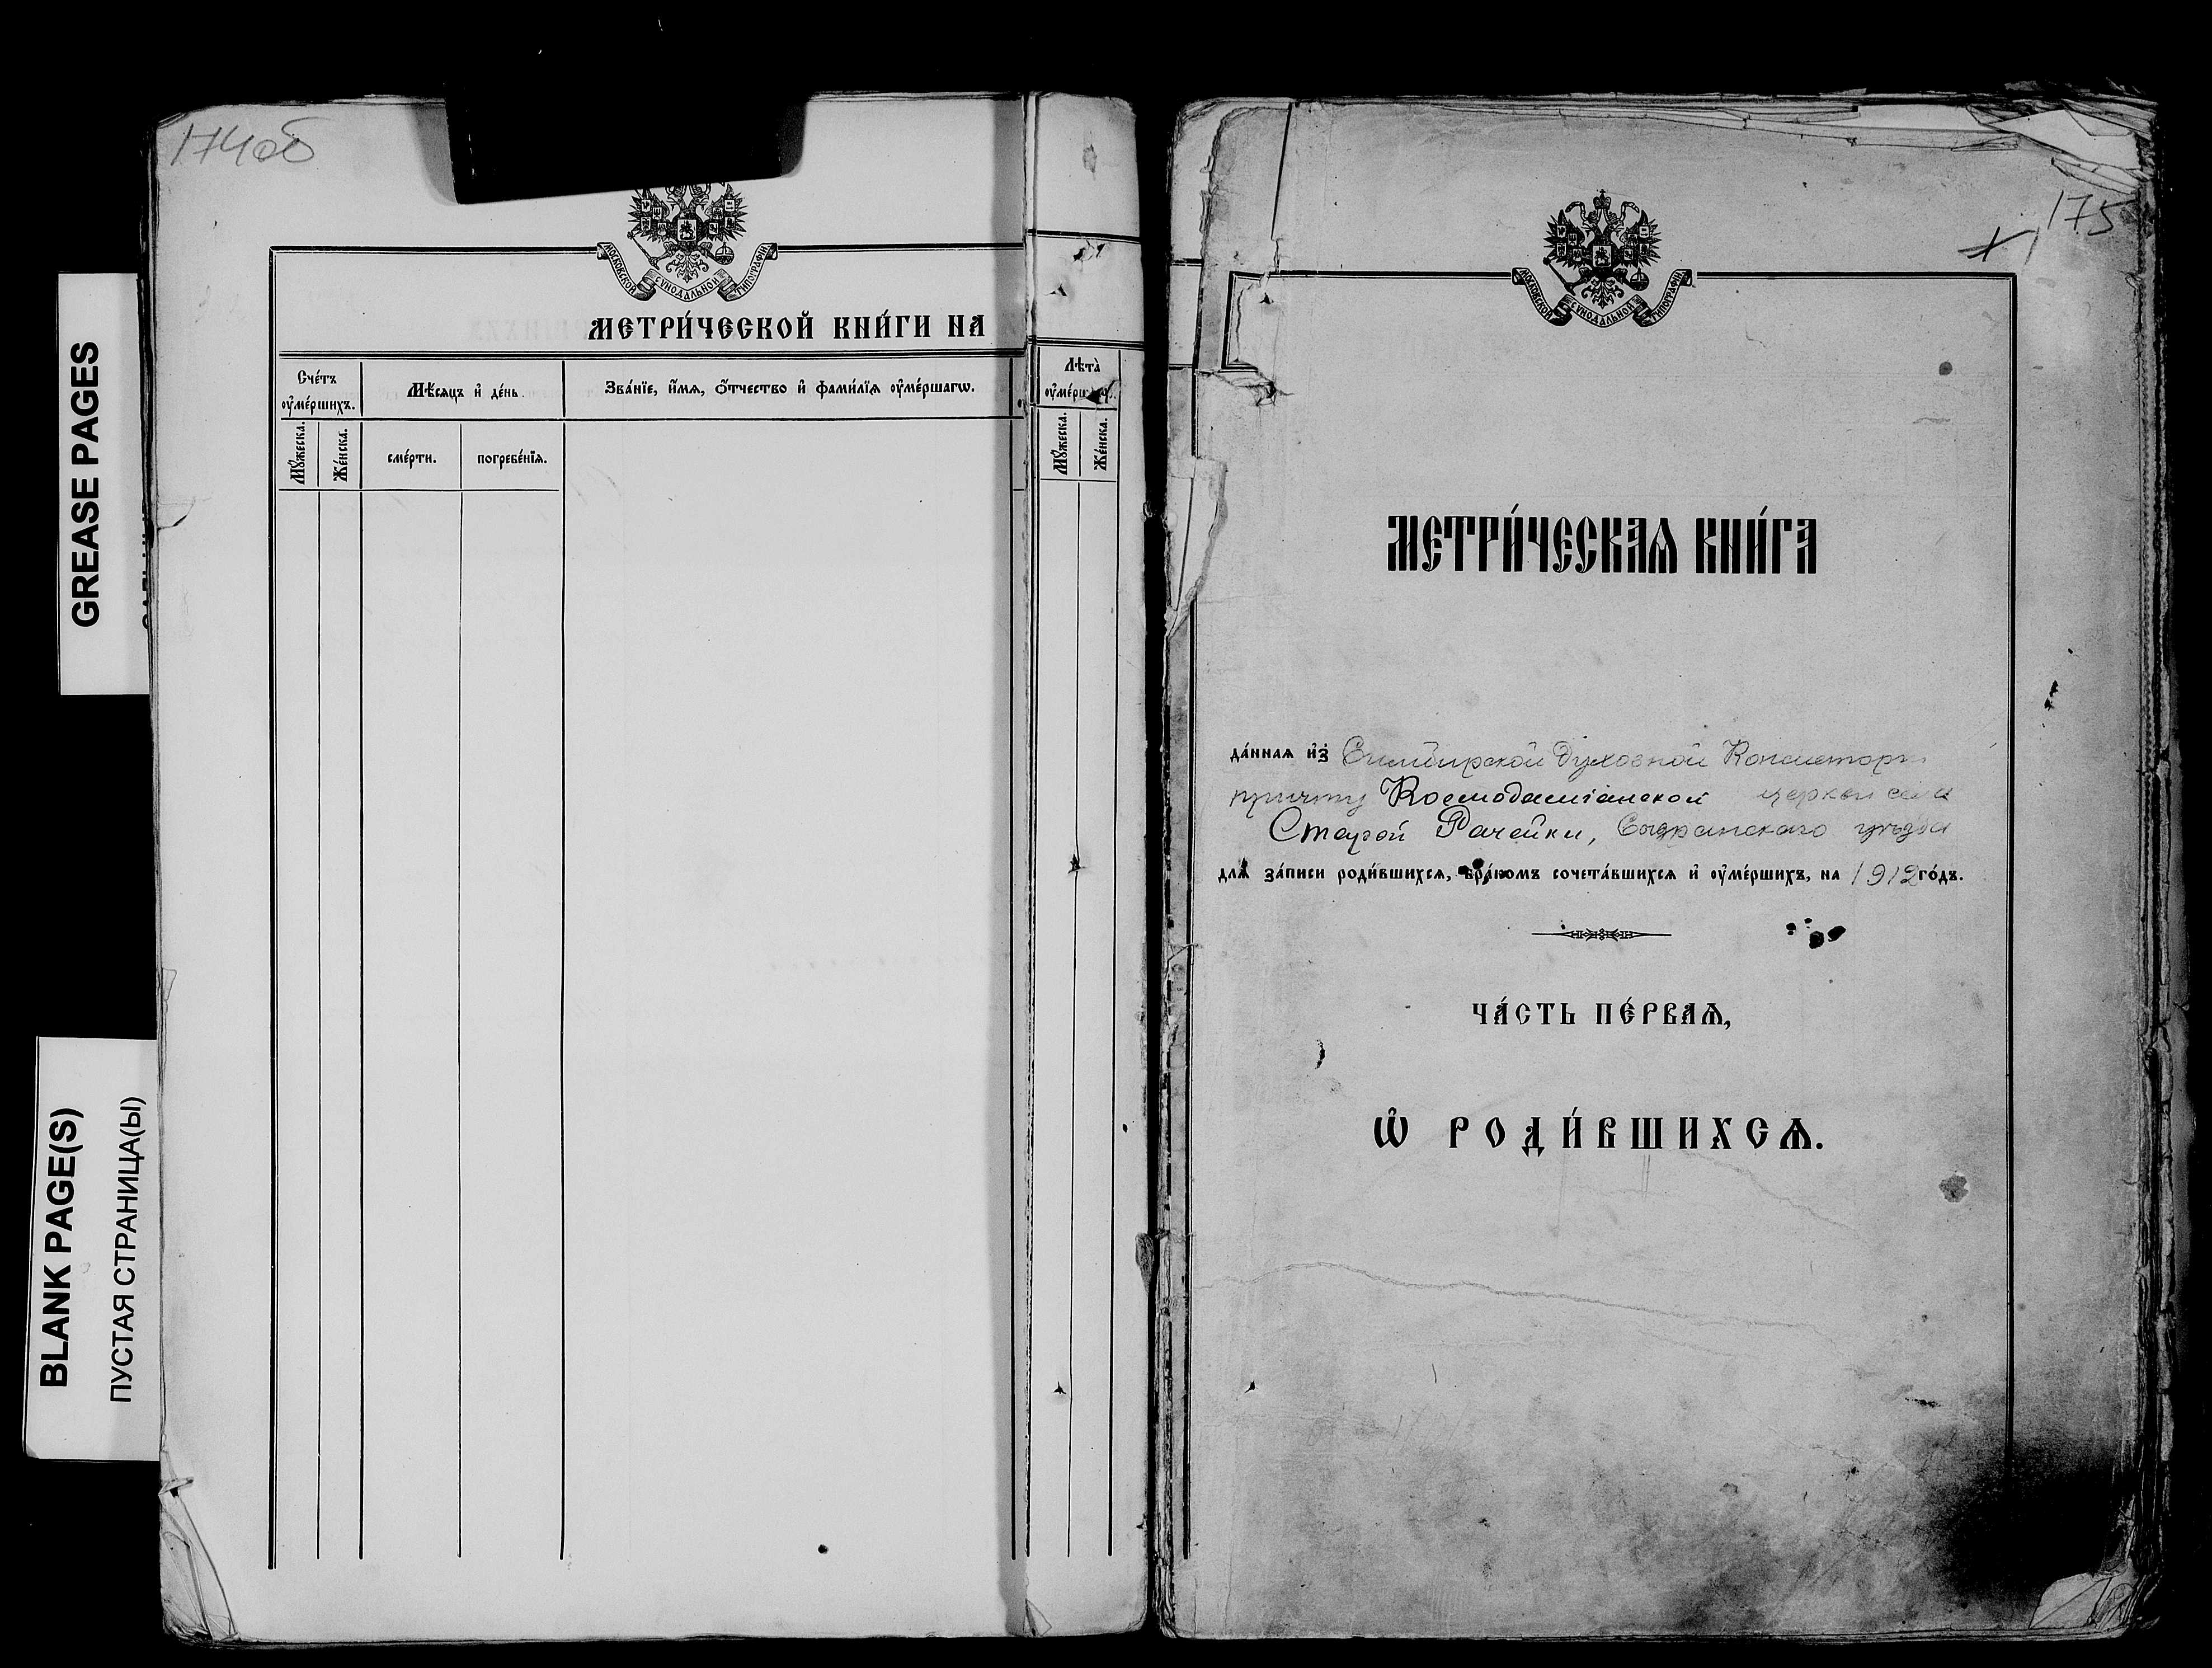 GREASE PAGES
BLANK PAGE(S)
ПУСТАЯ СТРАНИЦА(Ы)
174об
МОСКОВСКОЙ СѴНОДАЛЬНОЙ ТИПОГРАФІИ
МЕТРИ́ЧЕСКОЙ КНИ́ГИ НА
Сче́тъ ᲂу҆ме́ршихъ.
Мѣ́сяцъ и҆ де́нь.
Зва́нїе, и҆́мя, ѻ҆́тчество и҆ фами́лїя ᲂу҆ме́ршагѡ.
Лѣта̀
Мꙋ́жеска.
Же́нска.
сме́рти.
погребе́нїя.
Мꙋ́жеска.
Же́нска.
175
МОСКОВСКОЙ СѴНОДАЛЬНОЙ ТИПОГРАФІИ
МЕТРИ́ЧЕСКАѦ КНИ́ГА
да́нная и҆з̾ Симбирской Духовной Консистор
причту Космодаміанской церкви села
Старой Рачейки, Сызранскаго уѣзда
для за́писи роди́вшихся, бра́комъ сочета́вшихся и҆ ᲂу҆ме́ршихъ, на 1912 го́дъ.
ЧА́СТЬ ПЕ́РВАѦ,
Ѡ҆ РОДИ́ВШИХСѦ.